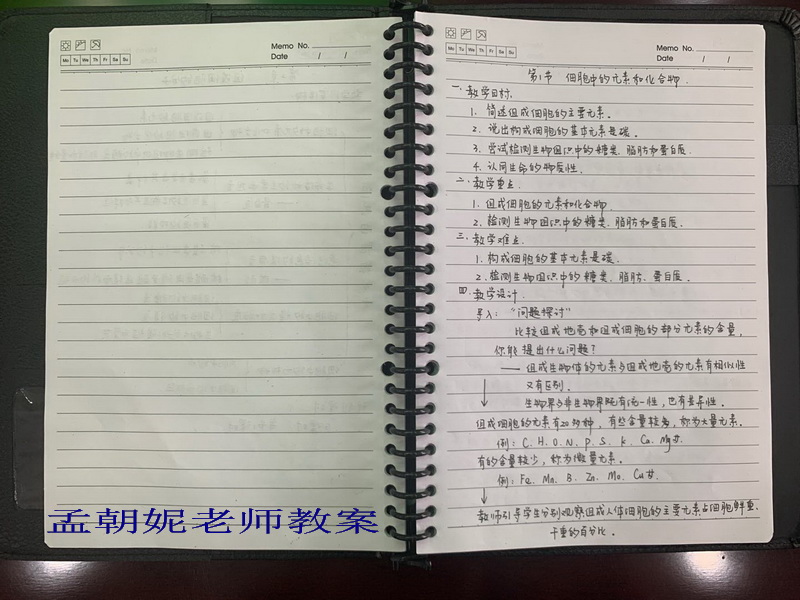 Memo No.
Mo Tu We Th Fr Sa Su
Date / /
孟朝妮老师教案
Memo No.
Mo Tu We Th Fr Sa Su
Date / /
第1节 细胞中的元素和化合物.
一. 教学目标.
1. 简述组成细胞的主要元素.
2. 说出构成细胞的基本元素是碳.
3. 尝试检测生物组织中的糖类. 脂肪和蛋白质.
4. 认同生命的物质性.
二. 教学重点.
1. 组成细胞的元素和化合物.
2. 检测生物组织中的糖类. 脂肪和蛋白质.
三. 教学难点.
1. 构成细胞的基本元素是碳.
2. 检测生物组织中的糖类. 脂肪. 蛋白质.
四. 教学设计.
导入: “问题探讨”
比较组成地壳和组成细胞的部分元素的含量.
你能提出什么问题?
—— 组成生物体的元素与组成地壳的元素有相似性
又有区别.
生物界与非生物界既有统一性, 也有差异性.
组成细胞的元素有20多种, 有些含量较多, 称为大量元素.
例: C. H. O. N. P. S. K. Ca. Mg等.
有的含量较少, 称为微量元素.
例: Fe. Mn. B. Zn. Mo. Cu等.
教师引导学生分别观察组成人体细胞的主要元素占细胞鲜重.
干重的百分比.